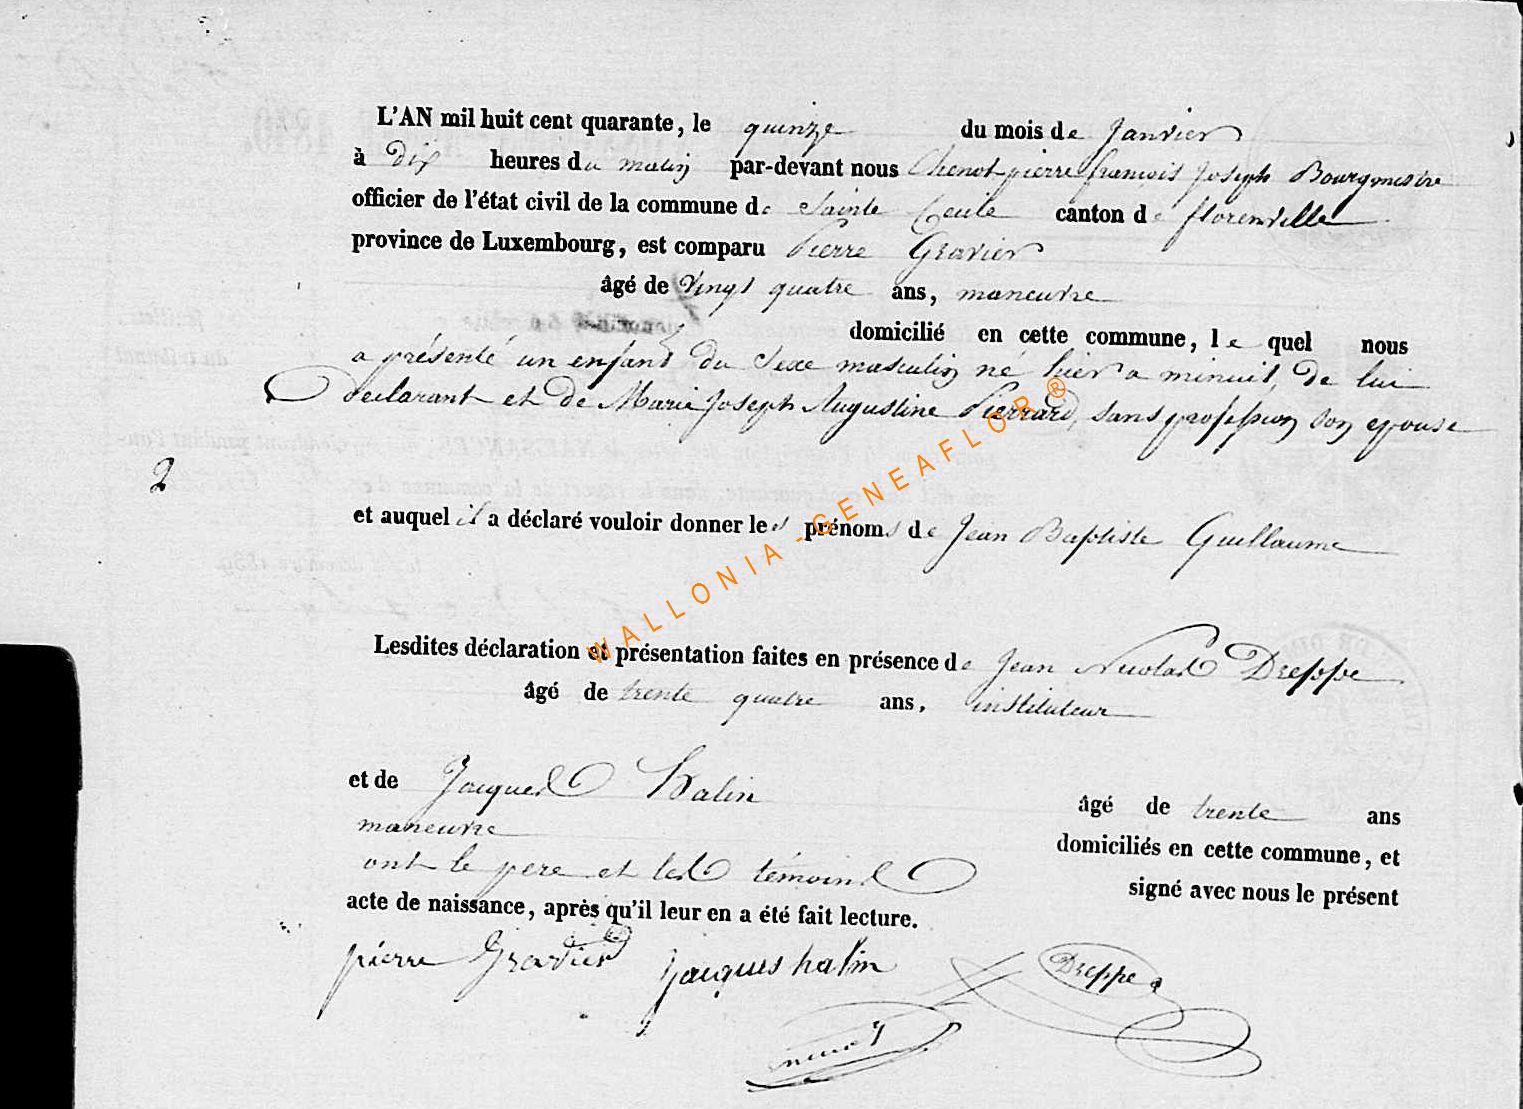 L'AN mil huit cent quarante, le quinze du mois de Janvier
à Dix heures du matin par-devant nous Chenot pierre françois Joseph Bourgmestre
officier de l'état civil de la commune de Sainte Cecile canton de florenville
province de Luxembourg, est comparu Pierre Gravier
âgé de Vingt quatre ans, maneuvre
domicilié en cette commune, le quel nous
a présenté un enfant du Sexe masculin né hier a minuit, de lui
Declarant et de Marie Joseph Augustine Pierrard, sans profession son epouse
2
et auquel il a déclaré vouloir donner les prénoms de Jean Baptiste Guillaume
WALLONIA - GENEAFLOR ®
Lesdites déclaration et présentation faites en présence de Jean Nicolas Dreppe
âgé de trente quatre ans, instituteur
et de Jacques Halin âgé de trente ans
maneuvre domiciliés en cette commune, et
ont le pere et les témoins signé avec nous le présent
acte de naissance, après qu'il leur en a été fait lecture.
pierre Gravier jacques halin Dreppe